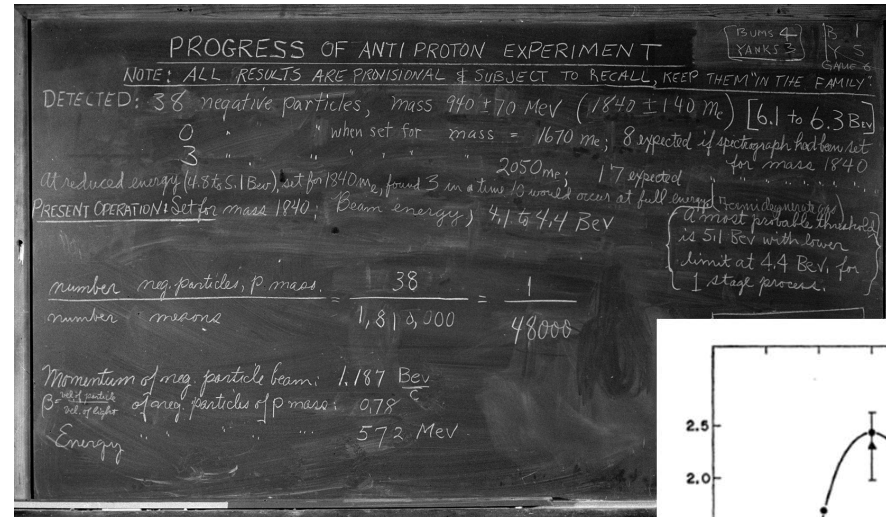 BUMS 4
YANKS 3
B 1
Y 5
GAME 6
PROGRESS OF ANTI PROTON EXPERIMENT
NOTE: ALL RESULTS ARE PROVISIONAL & SUBJECT TO RECALL, KEEP THEM "IN THE FAMILY".
DETECTED: 38 negative particles, mass 940 ± 70 MeV (1840 ± 140 me) [6.1 to 6.3 Bev]
0 " " " when set for mass = 1670 me; 8 expected if spectrograph had been set for mass 1840
3 " " " " " " 2050 me; 17 expected " " " " " "
At reduced energy (4.8 to 5.1 Bev), set for 1840 me, found 3 in a time 10 would occur at full energy
PRESENT OPERATION: Set for mass 1840; Beam energy, 4.1 to 4.4 BeV
a most probable threshold
is 5.1 Bev with lower
limit at 4.4 Bev, for
1 stage process.
number neg. particles, p mass. = 38 = 1
number mesons 1,810,000 48000
Momentum of neg. particle beam: 1.187 Bev/c
β = vel. of particle/vel. of light of neg. particles of p mass: 0.78
Energy " " " " 572 MeV
2.5
2.0